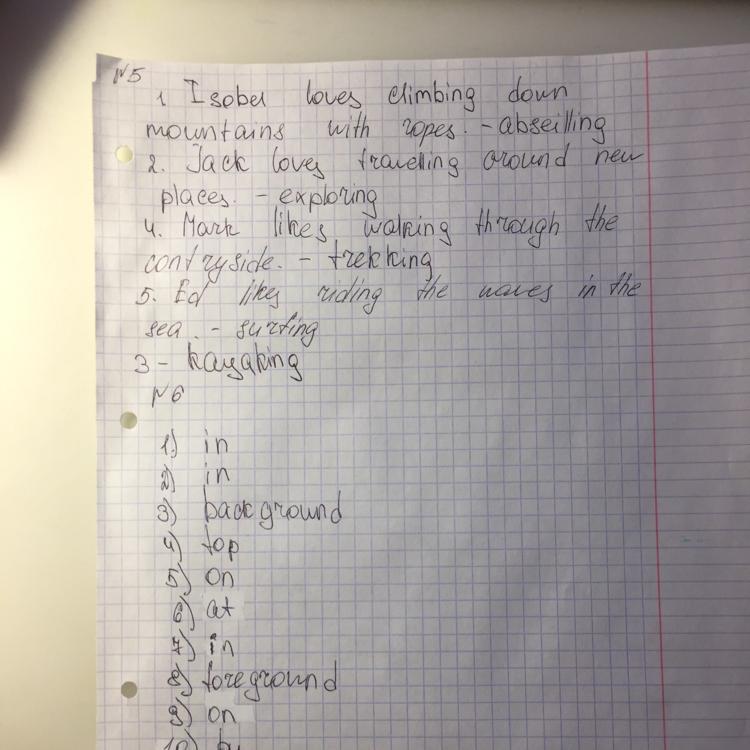 №5
1. Isobel loves climbing down
mountains with ropes. - abseilling
2. Jack loves travelling around new
places. - exploring
4. Mark likes walking through the
contryside. - trekking
5. Ed likes riding the waves in the
sea. - surfing
3 - kayaking
№6
1) in
2) in
3) background
4) top
5) on
6) at
7) in
8) foreground
9) on
10)